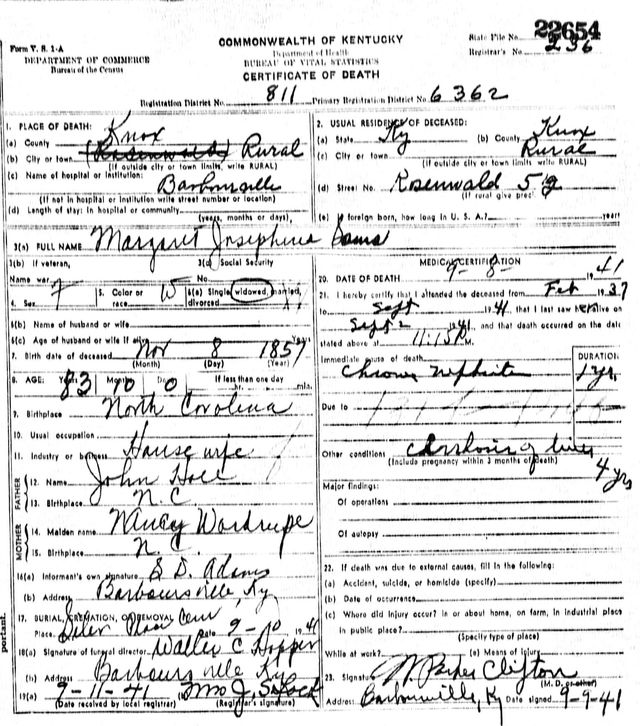 Form V. S. 1-A
DEPARTMENT OF COMMERCE
Bureau of the Census
COMMONWEALTH OF KENTUCKY
Department of Health
BUREAU OF VITAL STATISTICS
CERTIFICATE OF DEATH
State File No. 22654
Registrar's No. 236
Registration District No. 811 Primary Registration District No. 6362
1. PLACE OF DEATH:
(a) County Knox
(b) City or town (Rosenwald) Rural
(If outside city or town limits, write RURAL)
(c) Name of hospital or institution:
Barbourville
(If not in hospital or institution write street number or location)
(d) Length of stay: In hospital or community
(years, months or days)
2. USUAL RESIDENCE OF DECEASED:
(a) State Ky (b) County Knox
(c) City or town Rural
(If outside city or town limits write RURAL)
(d) Street No. Rosenwald
(If rural give prec.
(e) If foreign born, how long in U. S. A.? years
3(a) FULL NAME Margaret Josephine
3(b) If veteran, 3(c) Social Security
Name war No.
4. Sex F 5. Color or race W 6(a) Single, widowed, married, divorced
6(b) Name of husband or wife
6(c) Age of husband or wife if alive Years
7. Birth date of deceased Nov 8 1857
(Month) (Day) (Year)
8. AGE: Years 83 Months 10 Days 0 If less than one day
hr. min.
9. Birthplace North Carolina
10. Usual occupation
11. Industry or business House wife
FATHER
12. Name John
13. Birthplace N. C.
MOTHER
14. Maiden name Nancy
15. Birthplace N. C.
16(a) Informant's own signature S D. Adams
(b) Address Barbourville, Ky
17. BURIAL, CREMATION, OR REMOVAL
Place Cem Date 9-10 1941
18(a) Signature of funeral director Walter C Hopper
(b) Address Barbourville Ky
19(a) 9-11-41
(Date received by local registrar) (Registrar's signature)
MEDICAL CERTIFICATION
20. DATE OF DEATH 9-8- 1941
21. I hereby certify that I attended the deceased from Feb 1937
to Sept 1941 that I last saw her alive on
Sept 2 1941 and that death occurred on the date
stated above at 11:15 P.M.
Immediate cause of death DURATION
Chronic nephritis 1 yr.
Due to
Other conditions Cirrhosis of liver
(Include pregnancy within 3 months of death)
4 yrs
Major findings:
Of operations
Of autopsy
22. If death was due to external causes, fill in the following:
(a) Accident, suicide, or homicide (specify)
(b) Date of occurrence
(c) Where did injury occur? in or about home, on farm, in industrial place
in public place?
(Specify type of place)
While at work? (e) Means of injury
23. Signature Clifton
(M. D. or other)
Address Barbourville, Ky Date signed 9-9-41
portant.